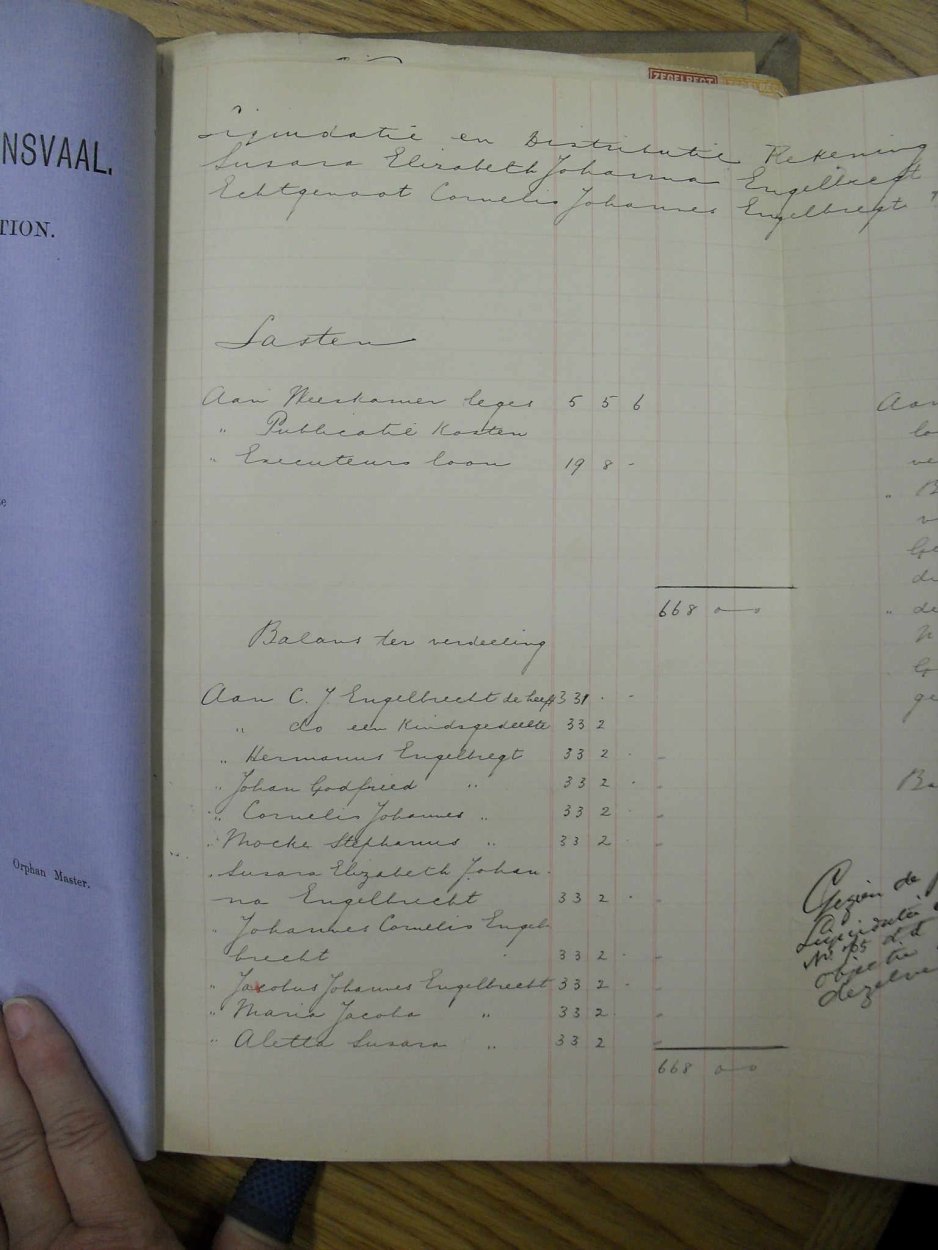 NSVAAL.
TION.
Orphan Master.
ZEGELREGT
Liquidatie en Distributie Rekening
Susara Elizabeth Johanna Engelbregt
Echtgenoot Cornelis Johannes Engelbregt
Lasten
Aan Weeskamer leges 5 5 6
" Publicatie Kosten
" Executeurs loon 19 8 -
668 0 0
Balans ter verdeeling
Aan C. J. Engelbrecht de helft 331 - -
" do een Kindsgedeelte 33 2
" Hermanus Engelbregt 33 2 -
" Johan Godfried " 33 2 -
" Cornelis Johannes " 33 2 -
" Mocke Stephanus " 33 2 -
" Susara Elizabeth Johan-
na Engelbrecht 33 2 -
" Johannes Cornelis Engel-
brecht 33 2 -
" Jacobus Johannes Engelbrecht 33 2 -
" Maria Jacoba " 33 2 -
" Aletta Susara " 33 2 -
668 0 0
Aan
Gezien de
Liquidatie
No 165 d.d
objectie
dezelve